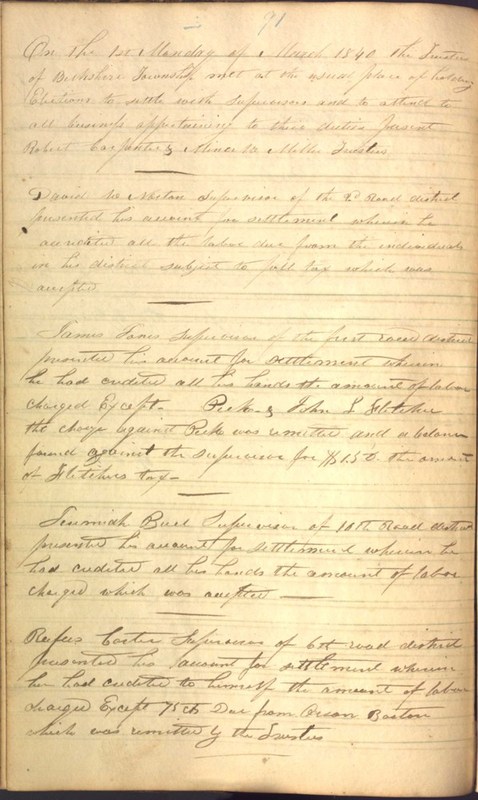 91
On the 1st Monday of March 1840 the Trustees
of Berkshire Township met at the usual place of holding
Elections to settle with Supervisors and to attend to
all business appertaining to their duties present
Robert Carpenter & Miller Trustees
David Supervisor of the 2d Road district
presented his account for settlement wherein he
accredited all the labour due from the individuals
in his district subject to poll tax which was
accepted
James Supervisor of the first road district
presented his account for settlement wherein
he had credited all his hands the amount of labor
charged Except - Peck & John L Fletcher
the charge against Peck was remitted and a balance
found against the supervisor for $1.50 the amount
of Fletchers tax -
Jeremiah Buel Supervisor of 10th Road district
presented his account for settlement wherein he
had credited all his hands the amount of labor
charged which was accepted
Rufus Carter Supervisor of 6th road district
presented his account for settlement wherein
he had credited to himself the amount of labor
charged Except 75 cts Due from Orson Barton
which was remitted by the Trustees